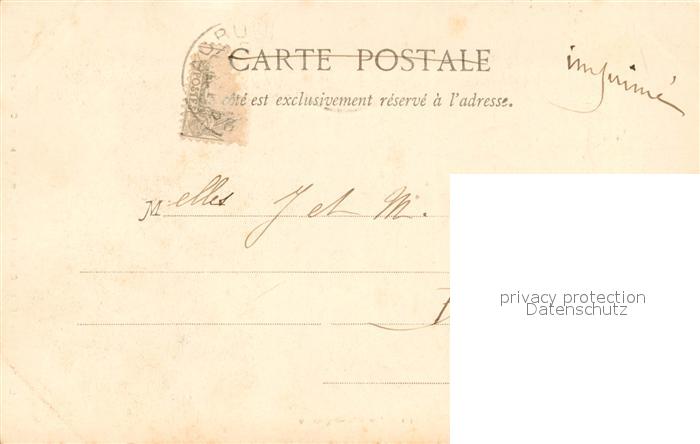 CARTE POSTALE
imprimé
côté est exclusivement réservé à l'adresse.
Melles J et M.
privacy protection
Datenschutz